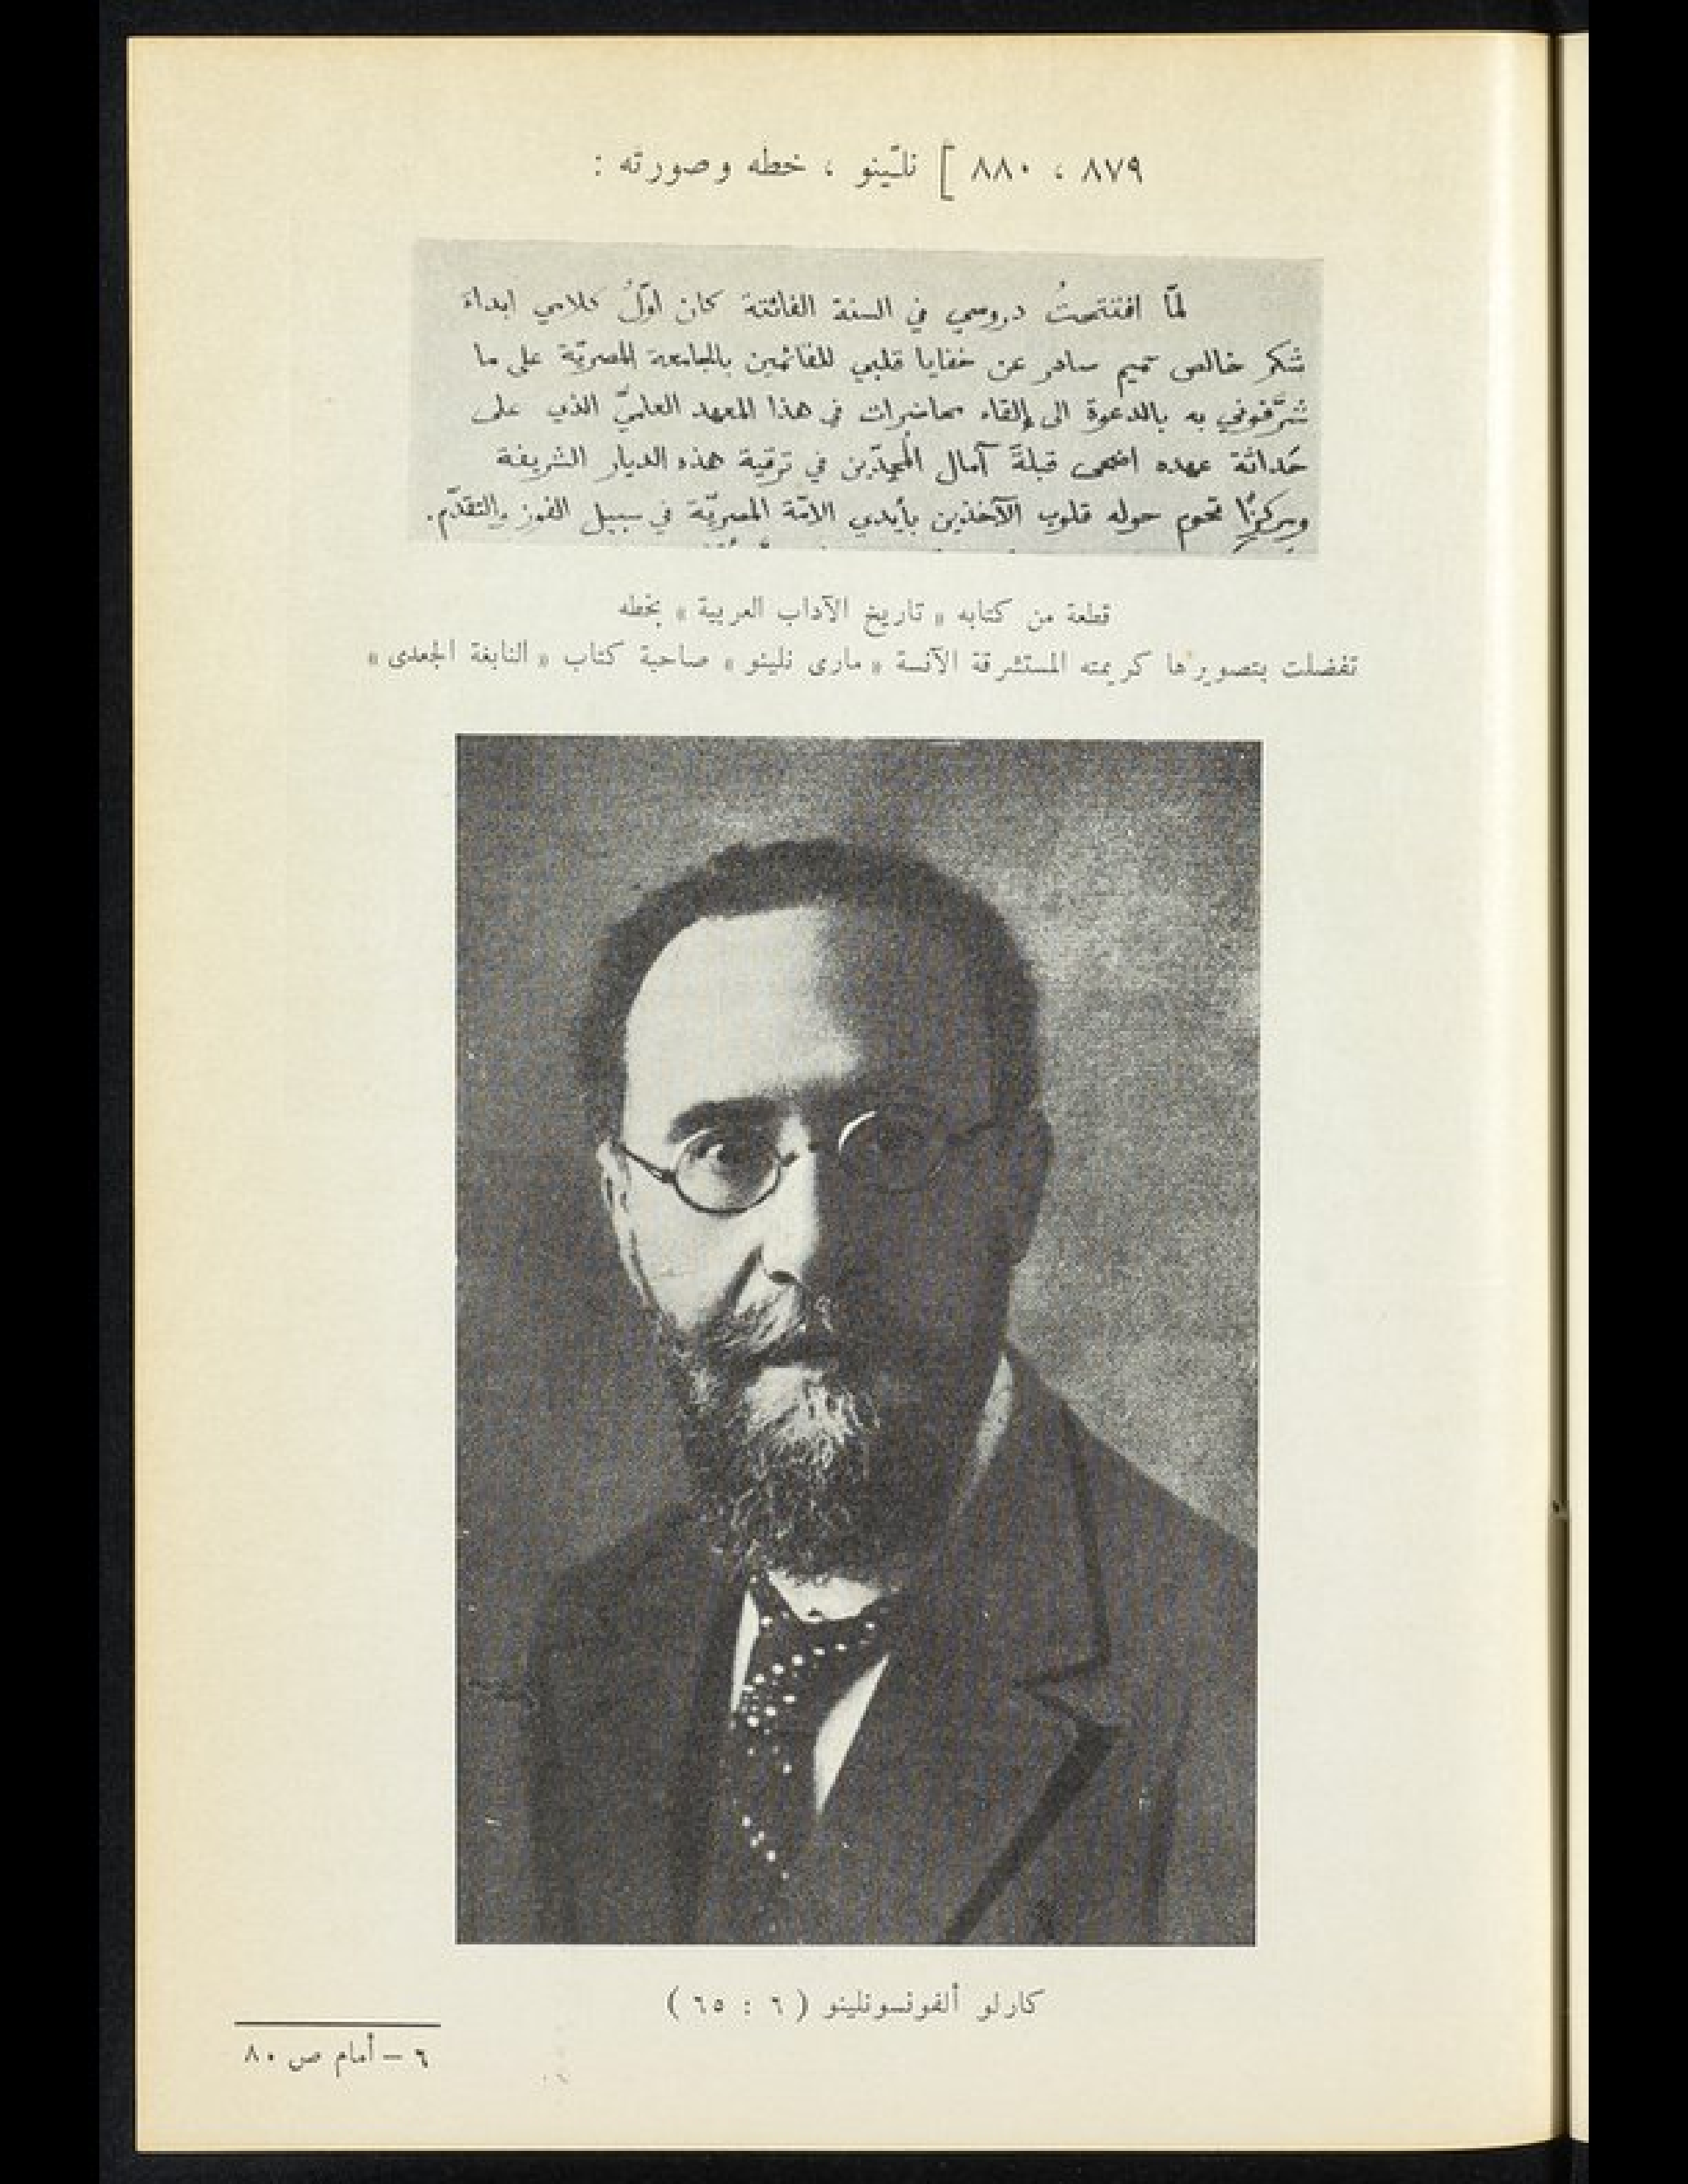 ٨٧٩ ، ٨٨٠ ] نلّينو ، خطه وصورته :
لمّا افتتحتُ دروسي في السنة الفائتة كان اوّلُ كلامي ابداء
شكر خالص صميم صادر عن خفايا قلبي للقائمين بالجامعة المصريّة على ما
شرّفوني به بالدعوة الى إلقاء محاضرات في هذا المعهد العلميّ الذي على
حَداثة عهده اضحى قبلةَ آمال المُجِدّين في ترقية هذه الديار الشريفة
ومركزًا تحوم حوله قلوب الآخذين بأيدي الامّة المصريّة في سبيل الفوز والتقدّم.
قطعة من كتابه « تاريخ الآداب العربية » بخطه
تفضلت بتصويرها كريمته المستشرقة الآنسة « مارى نلينو » صاحبة كتاب « النابغة الجعدى »
كارلو ألفونسونلينو ( ٦ : ٦٥ )
٦ – أمام ص ٨٠